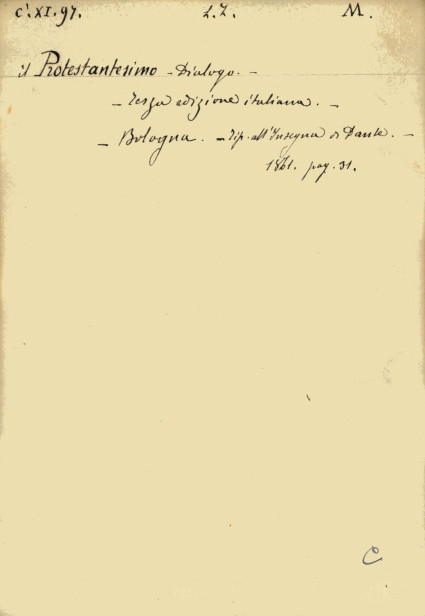 c'. XI. 97. L.Z. M.
il Protestantesimo - Dialogo. -
- Terza edizione italiana. -
- Bologna. - Tip. all'Insegna di Dante. -
1861. pag. 31.
C